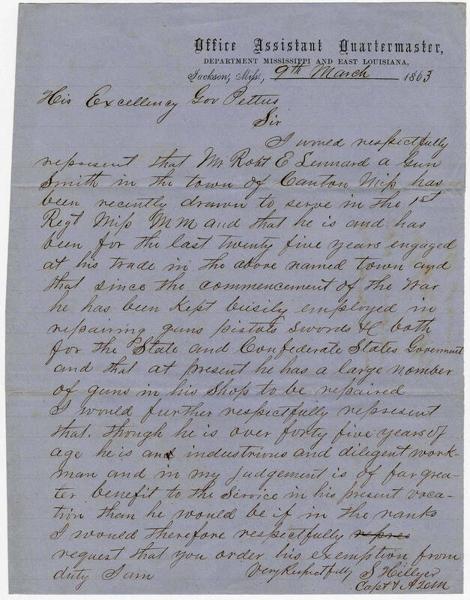 Office Assistant Quartermaster,
DEPARTMENT MISSISSIPPI AND EAST LOUISIANA,
Jackson, Miss., 9th March 1863
His Excellency Gov Pettus
Sir
I would respectfully
represent that Mr Robt E Lennard a Gun
Smith in the town of Canton Miss has
been recently drawn to serve in the 1st
Regt Miss M M and that he is and has
been for the last twenty five years engaged
at his trade in the above named town and
that since the commencement of the war
he has been kept busily employed in
repairing guns pistols swords &C both
for the State and Confederate States Government
and that at present he has a large number
of guns in his shop to be repaired
I would further respectfully represent
that. though he is over forty five years of
age he is an industrious and diligent work
man and in my judgement is of far grea-
ter benefit to the Service in his present voca-
tion than he would be if in the ranks
I would therefore respectfully repres
request that you order his exemption from
duty I am Very Respectfully S Hillyer
Capt & A Q M